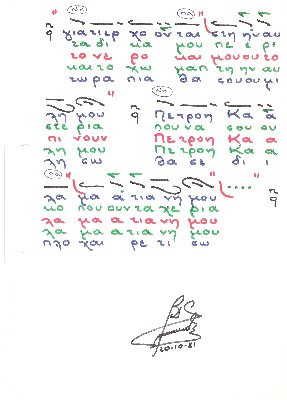 γιατιερ χο ονται στη ηναυ
τα δι κα μου πε ε ρι
το νε ρο και μουουτο
και το χω μα πτη ην αυ
τω ρα πια θα σουουμι
λη μου Πετροη Κα α
στε ρια που να σου ου
πι νουν Πετροη Κα α
λη μου Πετροη Κα α
λη σω θα σε δι ι
λα μα α τια νη μου
μο που ουν τα χε ρια
λα μα α τια νη μου
λα μα α τια νη μου
πλο χαι ρε τι σω
20-10-81